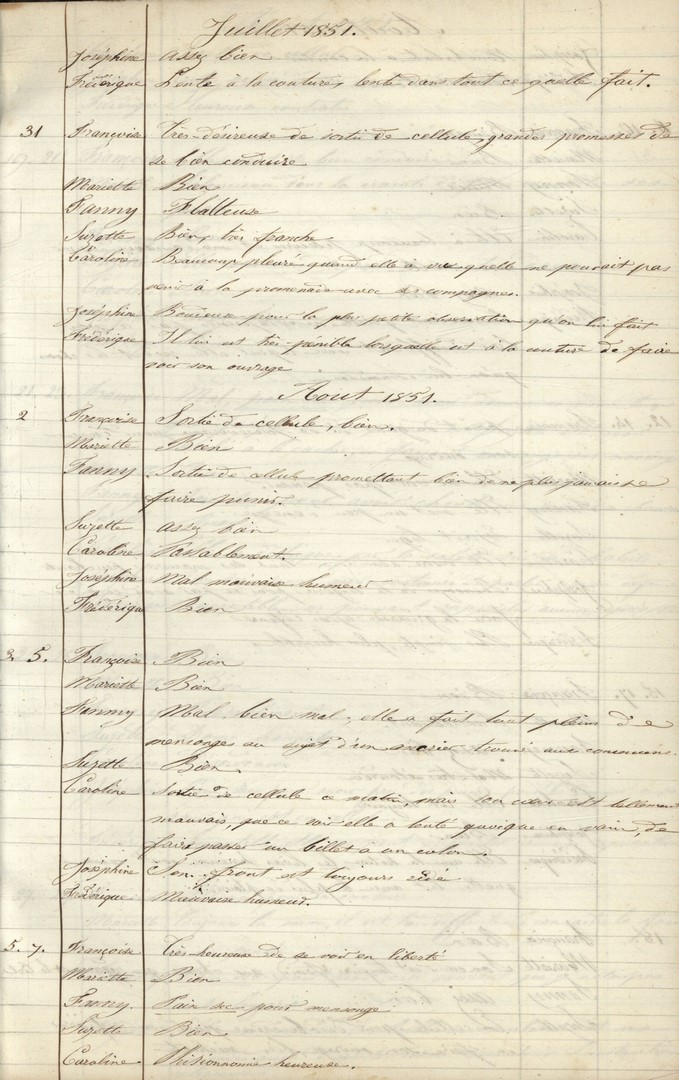 Juillet 1851.
Joséphine assez bien
Frédérique Lente à la couture, lente dans tout ce quelle fait.
31 Françoise Très-désireuse de sortir de cellule, grandes promesses de
se bien conduire
Mariette Bien
Fanny Flatteuse
Suzette Bien, très franche
Caroline Beaucoup pleuré quand elle à vu quelle ne pouvait pas
venir à la promenade avec ses compagnes.
Joséphine Boudeuse pour la plus petite observation qu'on lui fait
Frédérique Il lui est très-pénible lorsquelle est à la couture de faire
voir son ouvrage
Aout 1851.
2 Françoise Sortie de cellule, bien.
Mariette Bien
Fanny Sortie de cellule promettant bien de ne plus jamais se
faire punir.
Suzette assez bien
Caroline Passablement.
Joséphine Mal mauvaise humeur
Frédérique Bien
3 5. Françoise Bien
Mariette Bien
Fanny Mal, bien mal, elle a fait tout plein de
mensonges au sujet d'un encrier trouvé aux communs.
Suzette Bien.
Caroline Sortie de cellule ce matin, mais son cœur est tellement
mauvais, que ce soir elle a tenté quoique en vain, de
faire passer un billet a un colon.
Joséphine Son front est toujours ridé
Frédérique Mauvaise humeur.
5. 7. Françoise Très heureuse de se voir en liberté
Mariette Bien
Fanny. Pain sec pour mensonge
Suzette Bien
Caroline. Phisionnomie heureuse.